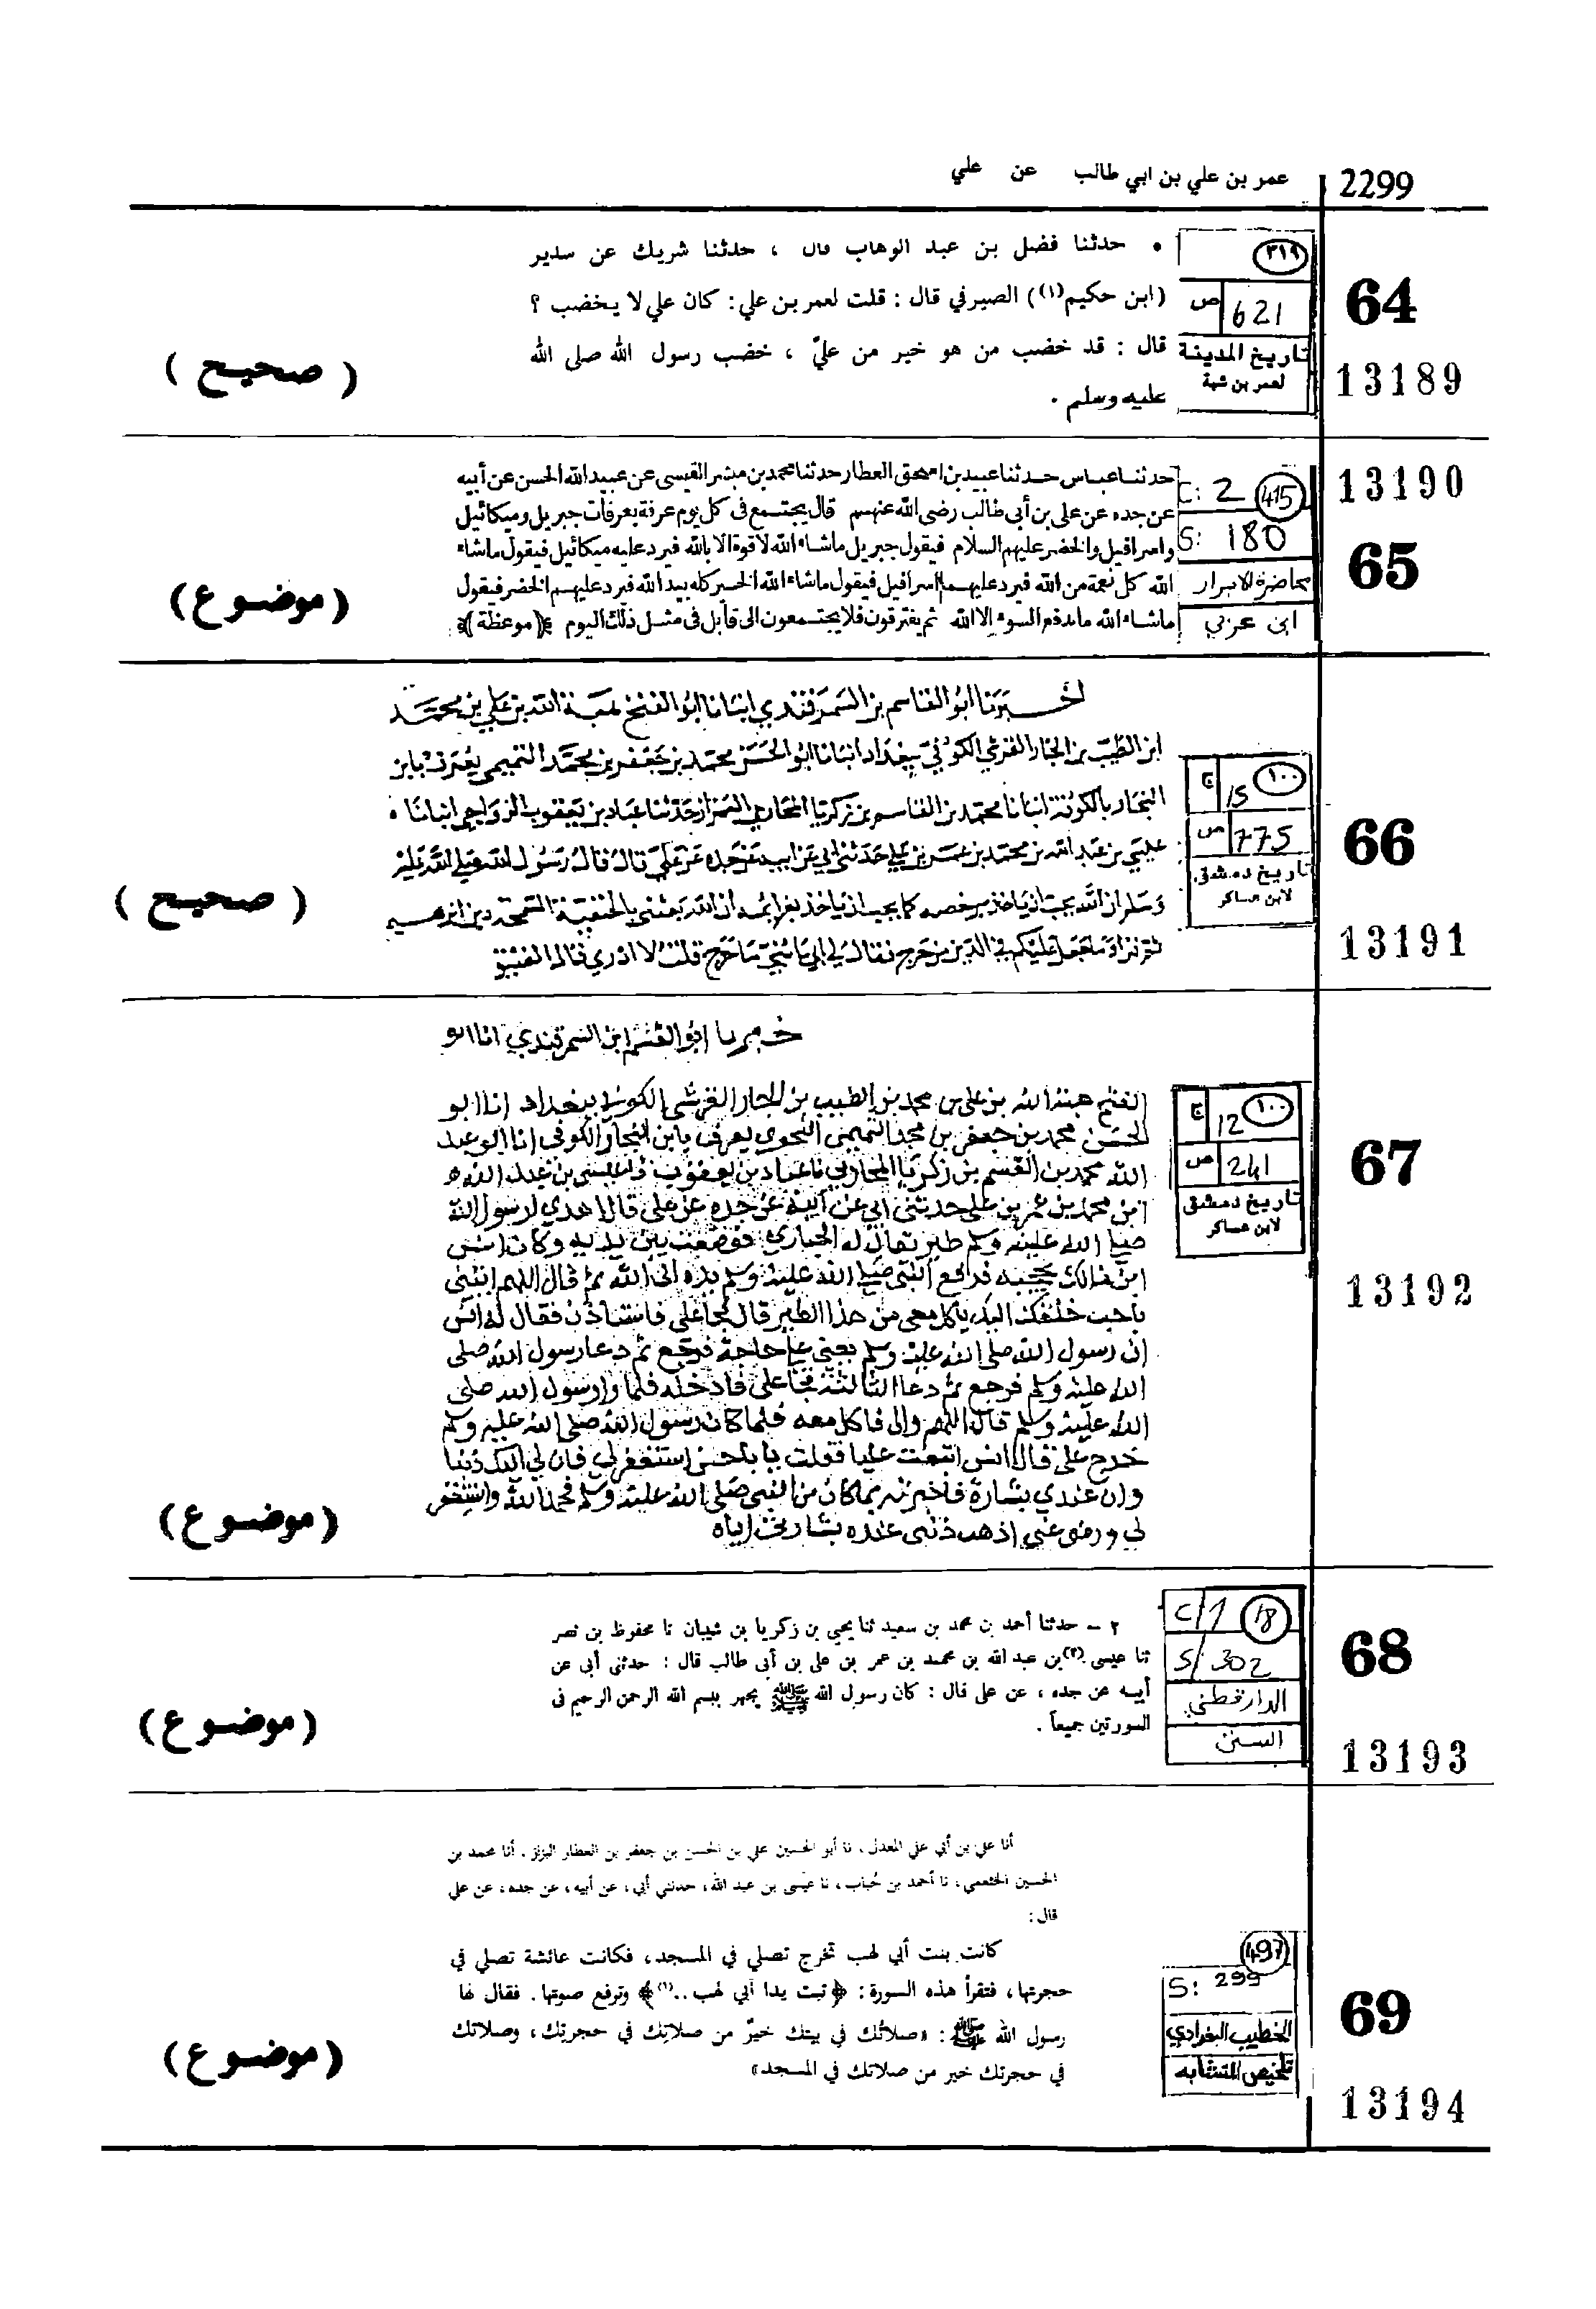 2299 عمر بن علي بن ابي طالب عن علي
64
13189
٣١٩
ص 621
تاريخ المدينة
لعمر بن شبة
• حدثنا فضل بن عبد الوهاب قال ، حدثنا شريك عن سدير
(ابن حكيم(١)) الصيرفي قال : قلت لعمر بن علي : كان علي لا يخضب ؟
قال : قد خضب من هو خير من عليّ ، خضب رسول الله صلى الله
عليه وسلم .
( صحيح )
13190
65
C: 2 415
S: 180
محاضرة الابرار
ابن عربي
حدثنا عباس حدثنا عبيد بن اسحق العطار حدثنا محمد بن مبشر القيسى عن عبيد الله الحسن عن أبيه
عن جده عن على بن أبى طالب رضى الله عنهم قال يجتمع فى كل يوم عرفة بعرفات جبريل وميكائيل
واسرافيل والخضر عليهم السلام فيقول جبريل ماشاء الله لا قوة الا بالله فيرد عليه ميكائيل فيقول ماشاء
الله كل نعمة من الله فيرد عليهما اسرافيل فيقول ماشاء الله الخير كله بيد الله فيرد عليهم الخضر فيقول
ماشاء الله ما يدفع السوء الا الله ثم يفترقون فلا يجتمعون الى قابل فى مثل ذلك اليوم ﴿موعظة﴾
( موضوع )
66
13191
١٠٠
ج 15
ص 775
تاريخ دمشق
لابن عساكر
اخبرنا ابو القاسم بن السمرقندي انبانا ابو الفتح هبة الله بن علي بن محمد
ابن الطيب بن الجار القرشي الكوفي ببغداد انبانا ابو الحسن محمد بن جعفر بن محمد التميمي يعرف بابن
النجار بالكوفة انبانا محمد بن القاسم بن زكريا المحاربي حدثنا عباد بن يعقوب الرواجني انبانا
عيسى بن عبد الله بن محمد بن عمر بن علي حدثني ابي عن ابيه عن جده عن علي قال قال رسول الله صلى الله عليه
وسلم ان الله يحب ان ياخذ برخصه كما يحب ان ياخذ بعزائمه ان الله بعثني بالحنيفية السمحة دين ابرهيم
ثم قرا وما جعل عليكم في الدين من حرج فقال لي ابي يا بني ما حرج قلت لا ادري قال الضيق
( صحيح )
67
13192
١٠٠
ج 12
ص 241
تاريخ دمشق
لابن عساكر
اخبرنا ابو القسم ابن السمرقندي انا ابو
الفتح هبة الله بن علي بن محمد بن الطيب بن الجار القرشي الكوفي ببغداد انا ابو
الحسن محمد بن جعفر بن محمد التميمي النحوي يعرف بابن النجار الكوفي انا ابو عبد
الله محمد بن القسم بن زكريا المحاربي نا عباد بن يعقوب نا عيسى بن عبد الله
ابن محمد بن عمر بن علي حدثني ابي عن ابيه عن جده عن علي قال اهدي لرسول الله
صلى الله عليه وسلم طير يقال له الحباري فوضعت بين يديه وكان انس
ابن مالك يحجبه فرفع النبي صلى الله عليه وسلم يده الى الله ثم قال اللهم ائتني
باحب خلقك اليك ياكل معي من هذا الطير قال فجا علي فاستاذن فقال له انس
ان رسول الله صلى الله عليه وسلم يعني على حاجة فرجع ثم دعا رسول الله صلى
الله عليه وسلم فرجع ثم دعا الثالثة فجا علي فادخله فلما راه رسول الله صلى
الله عليه وسلم قال اللهم والي فاكل معه فلما كان رسول الله صلى الله عليه وسلم
خرج علي قال انس اتبعت عليا فقلت يا ابا حسن استغفر لي فان لي اليك ذنبا
وان عندي بشارة فاخبرته بما كان من النبي صلى الله عليه وسلم فحمد الله واستغفر
لي ورضي عني اذهب ذنبي عنده بشارتي اياه
( موضوع )
68
13193
C/1 18
S/ 302
الدارقطني
السنن
٢ – حدثنا أحمد بن محمد بن سعيد ثنا يحيى بن زكريا بن شيبان نا محفوظ بن نصر
ثنا عيسى (٢) بن عبد الله بن محمد بن عمر بن على بن أبى طالب قال : حدثنى أبى عن
أبيه عن جده ، عن على قال : كان رسول الله ﷺ يجهر ببسم الله الرحمن الرحيم فى
السورتين جميعاً .
( موضوع )
69
13194
497
S: 299
الخطيب البغدادي
تلخيص المتشابه
أنا علي بن أبي علي المعدل، نا أبو الحسين علي بن الحسن بن جعفر بن العطار البزاز، أنا محمد بن
الحسين الخثعمي، نا أحمد بن حُباب، نا عيسى بن عبد الله، حدثني أبي، عن أبيه، عن جده، عن علي
قال :
كانت بنت أبي لهب تخرج تصلي في المسجد، فكانت عائشة تصلي في
حجرتها، فتقرأ هذه السورة : ﴿تبت يدا أبي لهب ..(١)﴾ وترفع صوتها. فقال لها
رسول الله ﷺ : «صلاتُك في بيتك خيرٌ من صلاتِك في حجرتِك، وصلاتك
في حجرتك خير من صلاتك في المسجد»
( موضوع )